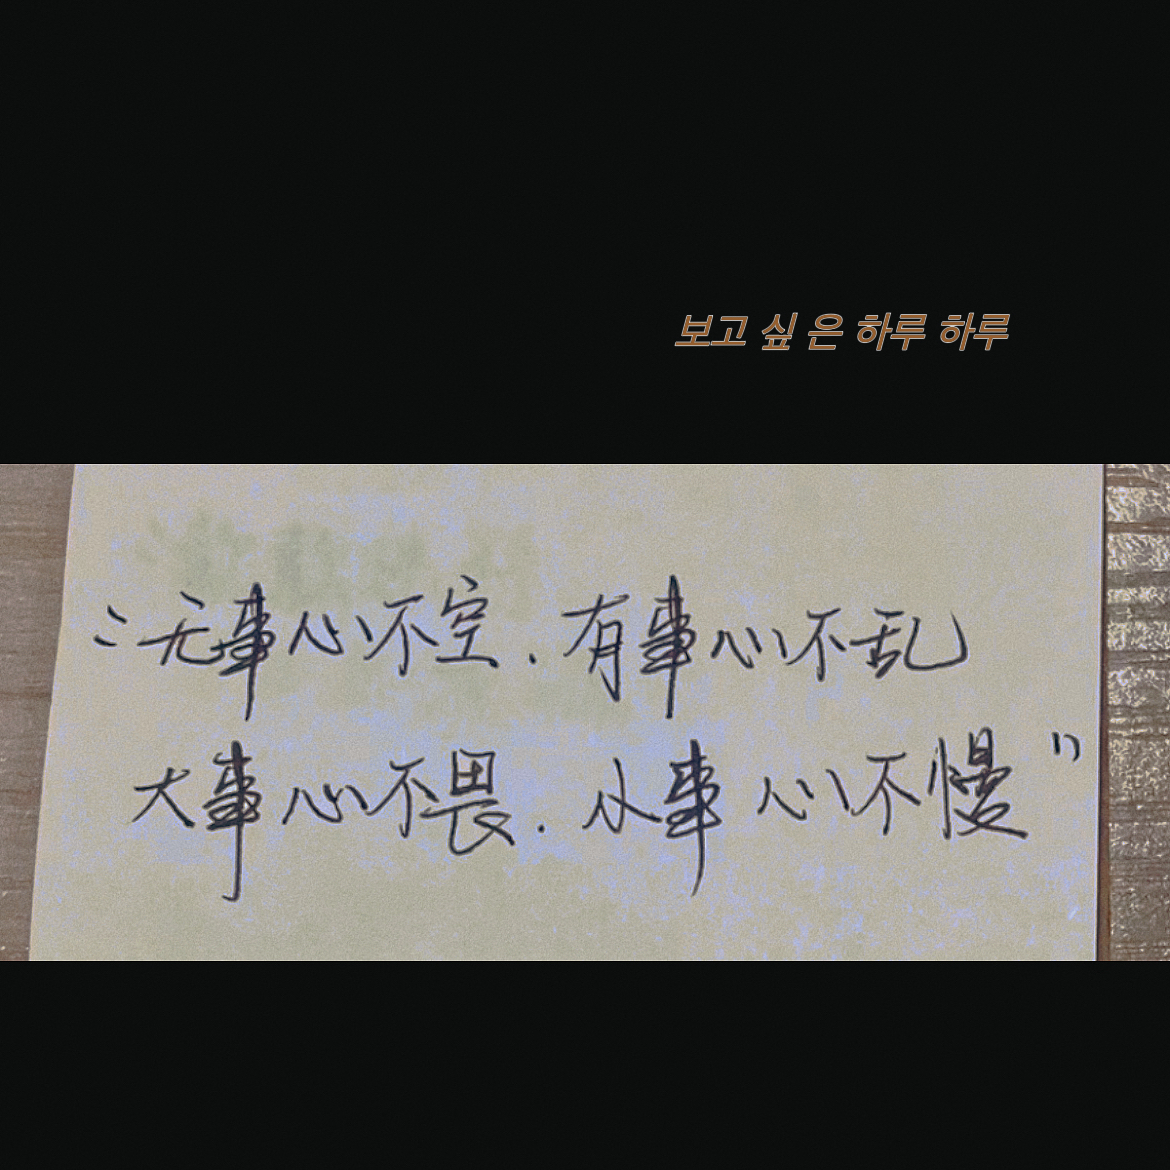 보고 싶 은 하루 하루
"无事心不空.有事心不乱
大事心不畏.小事心不慢"